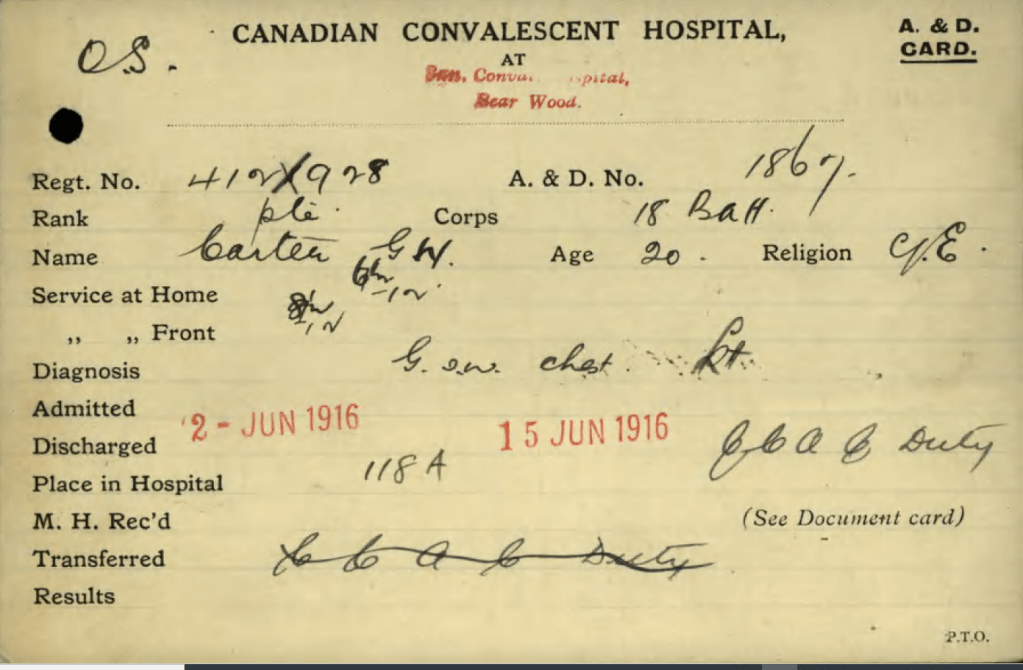 O.S.
CANADIAN CONVALESCENT HOSPITAL,
A. & D.
CARD.
AT
Can. Conva. pital,
Bear Wood.
Regt. No. 412928 A. & D. No. 1867.
Rank Pte. Corps 18 Batt.
Name Carter G.W. Age 20. Religion C.E.
Service at Home 6/12
„ „ Front 8/12
Diagnosis G.S.W. chest. Rt.
Admitted 2 - JUN 1916
Discharged 15 JUN 1916 C C A C Duty
Place in Hospital 118 A
M. H. Rec'd (See Document card)
Transferred C C A C Duty
Results
P.T.O.